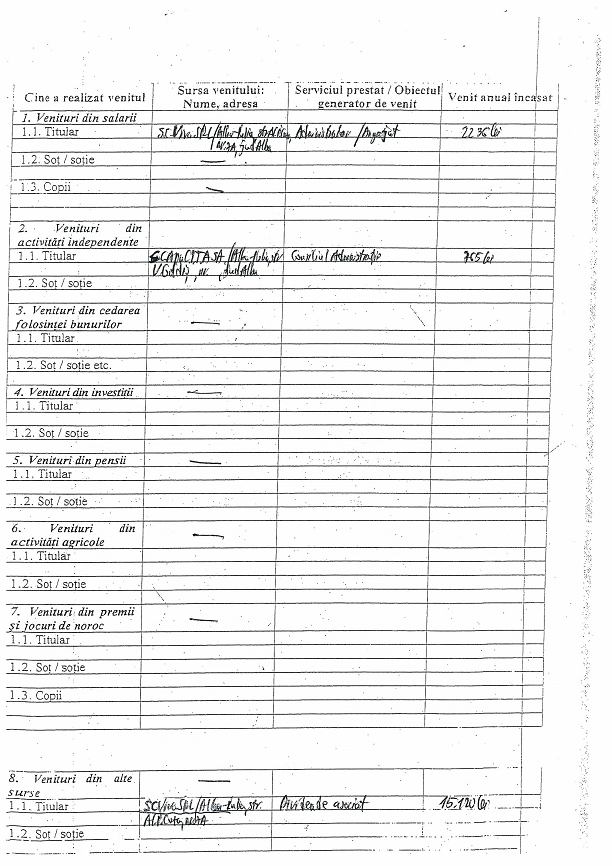 Cine a realizat venitul Sursa venitului: Nume, adresa Serviciul prestat / Obiectul generator de venit Venit anual încasat
1. Venituri din salarii
1.1. Titular Administrator / Angajat
jud Alba
1.2. Soț / soție —
1.3. Copii —
2. Venituri din
activități independente
1.1. Titular Consiliul Administrație
jud Alba
1.2. Soț / soție
3. Venituri din cedarea
folosinței bunurilor —
1.1. Titular
1.2. Soț / soție etc.
4. Venituri din investiții —
1.1. Titular
1.2. Soț / soție
5. Venituri din pensii —
1.1. Titular
1.2. Soț / soție
6. Venituri din
activități agricole —
1.1. Titular
1.2. Soț / soție
7. Venituri din premii
și jocuri de noroc —
1.1. Titular
1.2. Soț / soție
1.3. Copii
8. Venituri din alte —
surse
1.1. Titular Alba-Iulia, str. Dividende asociat 15.120 lei
1.2. Soț / soție